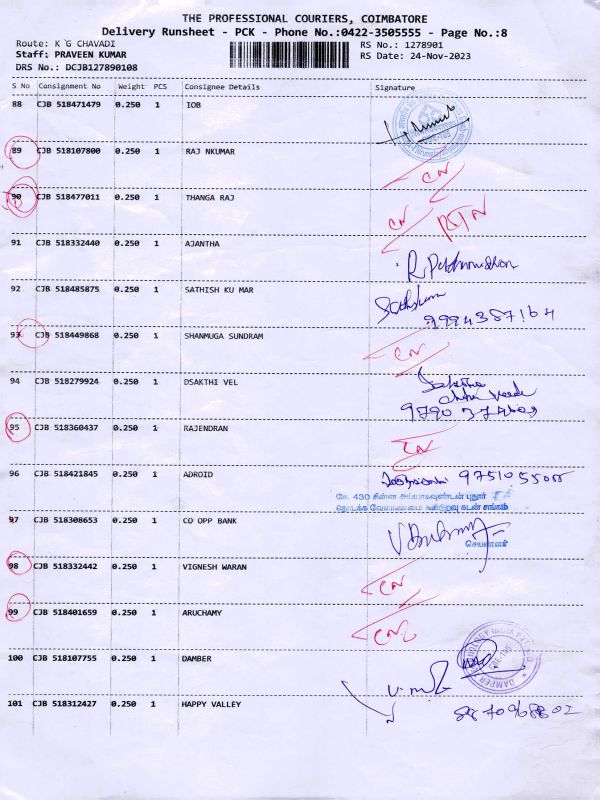 THE PROFESSIONAL COURIERS, COIMBATORE
Delivery Runsheet - PCK - Phone No.:0422-3505555 - Page No.:8
Route: K G CHAVADI
RS No.: 1278901
Staff: PRAVEEN KUMAR
RS Date: 24-Nov-2023
DRS No.: DCJB127890108
S No Consignment No Weight PCS Consignee Details Signature
88 CJB 518471479 0.250 1 IOB
89 CJB 518107800 0.250 1 RAJ NKUMAR CN
90 CJB 518477011 0.250 1 THANGA RAJ CN RTN
91 CJB 518332440 0.250 1 AJANTHA
92 CJB 518485875 0.250 1 SATHISH KU MAR Sathish
9994387164
93 CJB 518449868 0.250 1 SHANMUGA SUNDRAM CN
94 CJB 518279924 0.250 1 DSAKTHI VEL
95 CJB 518360437 0.250 1 RAJENDRAN CN
96 CJB 518421845 0.250 1 ADROID
கே. 430 சின்ன அய்யாகவுண்டன் புதூர்
வேளாண்மை கூட்டுறவு கடன் சங்கம்
97 CJB 518308653 0.250 1 CO OPP BANK
செயலாளர்
98 CJB 518332442 0.250 1 VIGNESH WARAN CN
99 CJB 518401659 0.250 1 ARUCHAMY CN
100 CJB 518107755 0.250 1 DAMBER
101 CJB 518312427 0.250 1 HAPPY VALLEY